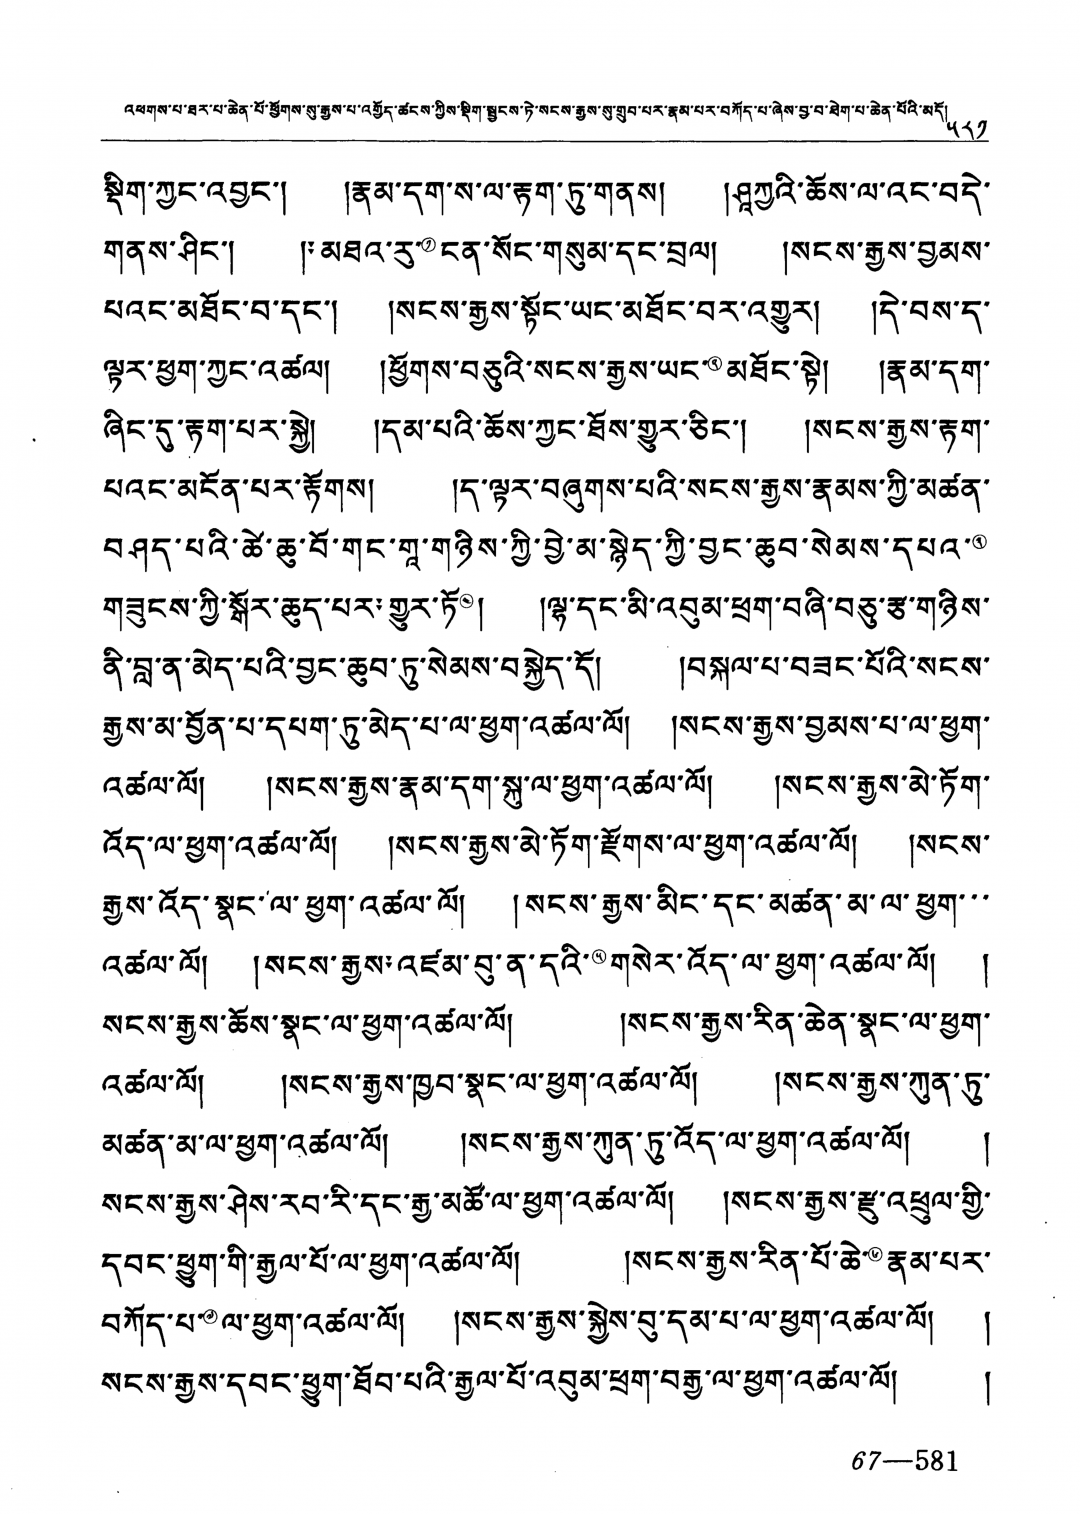 འཕགས་པ་ཐར་པ་ཆེན་པོ་ཕྱོགས་སུ་རྒྱས་པ་འགྱོད་ཚངས་ཀྱིས་སྡིག་སྦྱངས་ཏེ་སངས་རྒྱས་སུ་གྲུབ་པར་རྣམ་པར་བཀོད་པ་ཞེས་བྱ་བ་ཐེག་པ་ཆེན་པོའི་མདོ། ༥༨༡
སྡིག་ཀྱང་འབྱང་། །རྣམ་དག་ས་ལ་རྟག་ཏུ་གནས། །ཤཱཀྱའི་ཆོས་ལ་འང་བདེ་
གནས་ཤིང་། །༔མཐའ་རུ་①ངན་སོང་གསུམ་དང་བྲལ། །སངས་རྒྱས་བྱམས་
པའང་མཐོང་བ་དང་། །སངས་རྒྱས་སྟོང་ཡང་མཐོང་བར་འགྱུར། །དེ་བས་ད་
ལྟར་ཕྱག་ཀྱང་འཚལ། །ཕྱོགས་བཅུའི་སངས་རྒྱས་ཡང་②མཐོང་སྟེ། །རྣམ་དག་
ཞིང་དུ་རྟག་པར་སྐྱེ། །དམ་པའི་ཆོས་ཀྱང་ཐོས་གྱུར་ཅིང་། །སངས་རྒྱས་རྟག་
པའང་མངོན་པར་རྟོགས། །ད་ལྟར་བཞུགས་པའི་སངས་རྒྱས་རྣམས་ཀྱི་མཚན་
བཤད་པའི་ཚེ་ཆུ་བོ་གང་གཱ་གཉིས་ཀྱི་བྱེ་མ་སྙེད་ཀྱི་བྱང་ཆུབ་སེམས་དཔའ་③
གཟུངས་ཀྱི་སྒོར་ཆུད་པར༔གྱུར་ཏོ④། །ལྷ་དང་མི་འབུམ་ཕྲག་བཞི་བཅུ་རྩ་གཉིས་
ནི་བླ་ན་མེད་པའི་བྱང་ཆུབ་ཏུ་སེམས་བསྐྱེད་དོ། །བསྐལ་པ་བཟང་པོའི་སངས་
རྒྱས་མ་བྱོན་པ་དཔག་ཏུ་མེད་པ་ལ་ཕྱག་འཚལ་ལོ། །སངས་རྒྱས་བྱམས་པ་ལ་ཕྱག་
འཚལ་ལོ། །སངས་རྒྱས་རྣམ་དག་སྐུ་ལ་ཕྱག་འཚལ་ལོ། །སངས་རྒྱས་མེ་ཏོག་
འོད་ལ་ཕྱག་འཚལ་ལོ། །སངས་རྒྱས་མེ་ཏོག་རྫོགས་ལ་ཕྱག་འཚལ་ལོ། །སངས་
རྒྱས་འོད་སྣང་ལ་ཕྱག་འཚལ་ལོ། །སངས་རྒྱས་མིང་དང་མཚན་མ་ལ་ཕྱག་་་
འཚལ་ལོ། །སངས་རྒྱས༔འཛམ་བུ་ན་དའི་⑤གསེར་འོད་ལ་ཕྱག་འཚལ་ལོ། །
སངས་རྒྱས་ཆོས་སྣང་ལ་ཕྱག་འཚལ་ལོ། །སངས་རྒྱས་རིན་ཆེན་སྣང་ལ་ཕྱག་
འཚལ་ལོ། །སངས་རྒྱས་ཁྱབ་སྣང་ལ་ཕྱག་འཚལ་ལོ། །སངས་རྒྱས་ཀུན་ཏུ་
མཚན་མ་ལ་ཕྱག་འཚལ་ལོ། །སངས་རྒྱས་ཀུན་ཏུ་འོད་ལ་ཕྱག་འཚལ་ལོ། །
སངས་རྒྱས་ཤེས་རབ་རི་དང་རྒྱ་མཚོ་ལ་ཕྱག་འཚལ་ལོ། །སངས་རྒྱས་རྫུ་འཕྲུལ་གྱི་
དབང་ཕྱུག་གི་རྒྱལ་པོ་ལ་ཕྱག་འཚལ་ལོ། །སངས་རྒྱས་རིན་པོ་ཆེ་⑥རྣམ་པར་
བཀོད་པ་⑦ལ་ཕྱག་འཚལ་ལོ། །སངས་རྒྱས་སྐྱེས་བུ་དམ་པ་ལ་ཕྱག་འཚལ་ལོ། །
སངས་རྒྱས་དབང་ཕྱུག་ཐོབ་པའི་རྒྱལ་པོ་འབུམ་ཕྲག་བརྒྱ་ལ་ཕྱག་འཚལ་ལོ། །
67—581